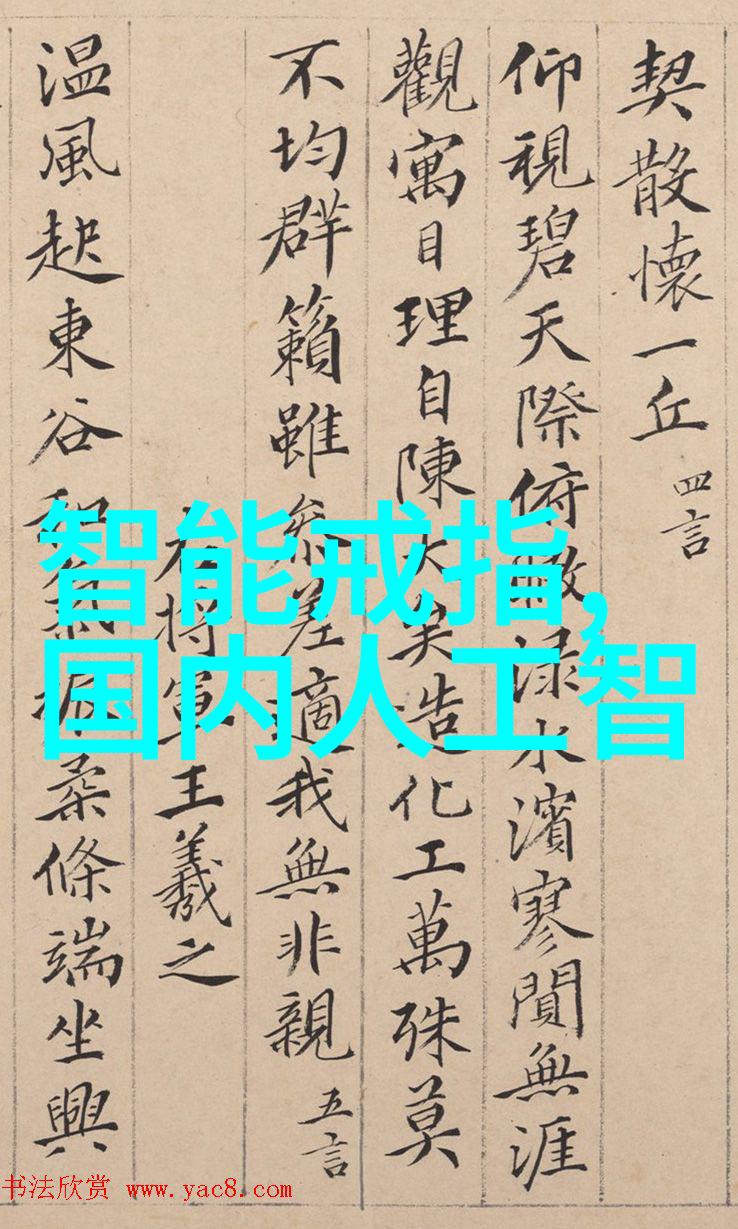 契散懷一丘 四言
仰視碧天際俯瞰渌水濱寥閴無涯
觀寓目理自陳大矣造化工萬殊莫
不均群籟雖參差適我無非親 五言
右將軍王羲之
温風起東谷和氣振柔條端坐興
智能戒指,
国内人工智
书法欣赏 www.yac8.com